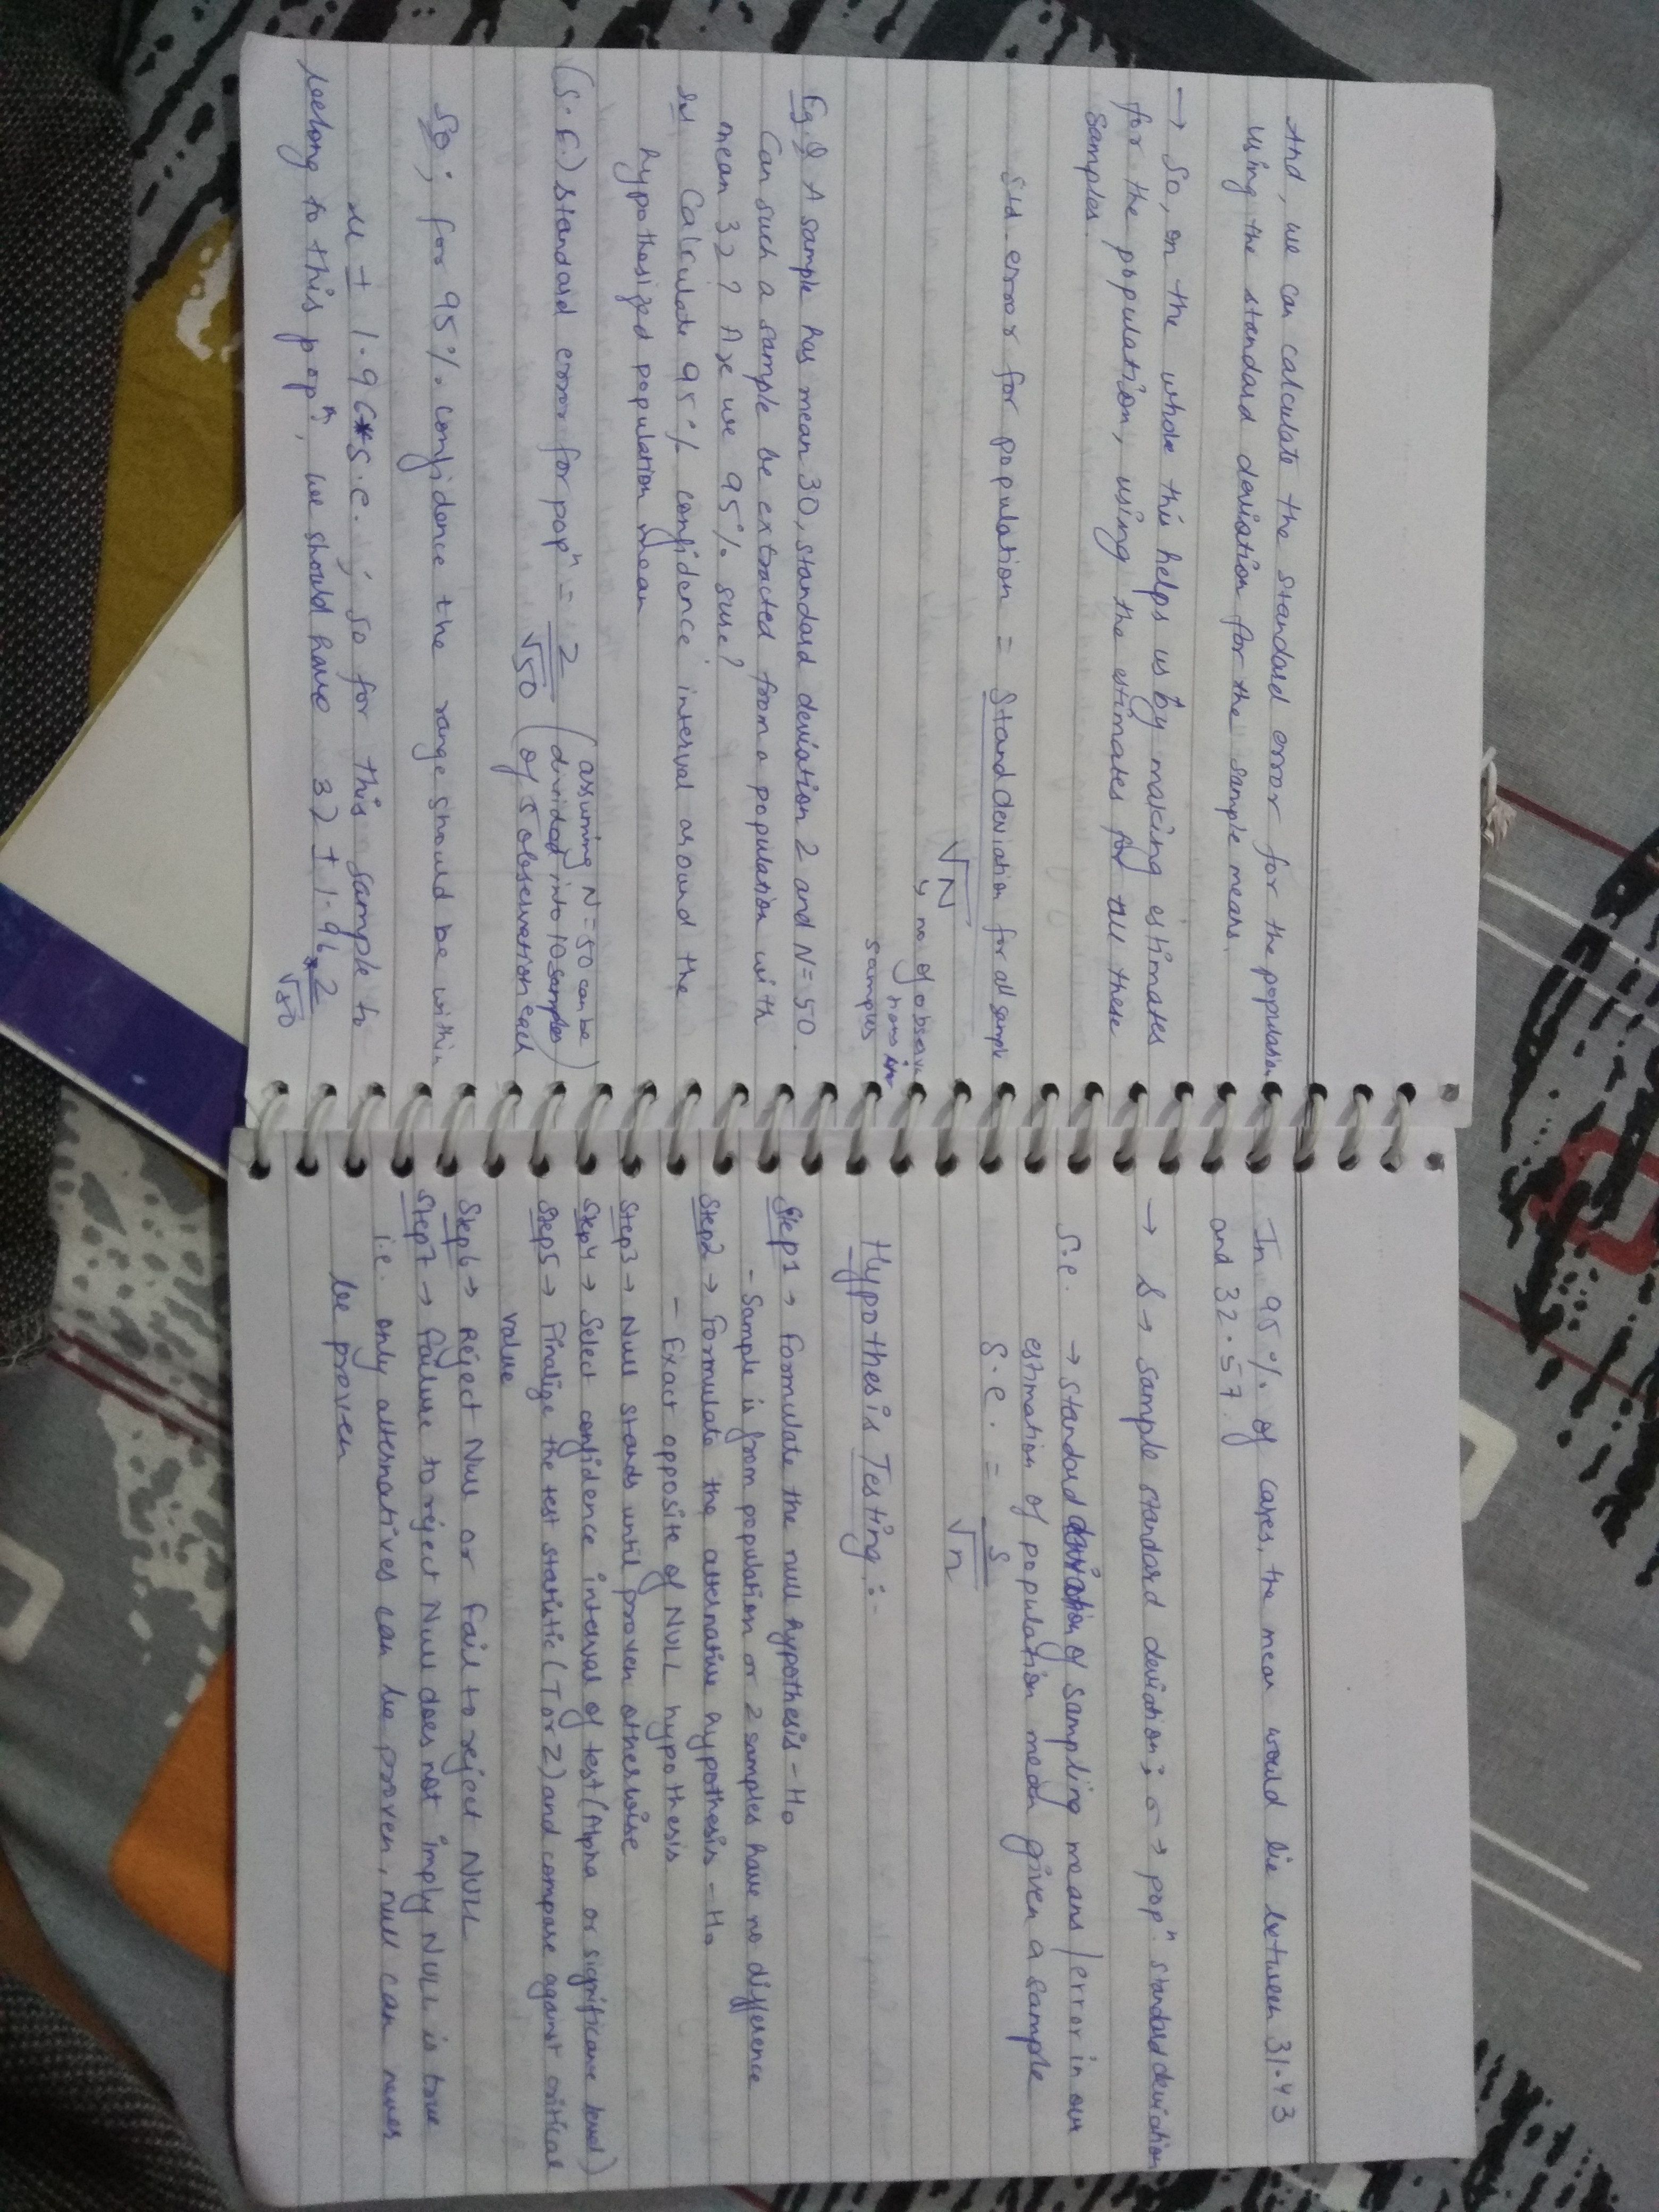 And, we can calculate the standard error for the population
using the standard deviation for the sample means.
→ So, on the whole this helps us by making estimates
for the population, using the estimates for all these
samples.
std. error for population = Stand deviation for all sample
√N
↳ no of observa
tions in
samples
Eg.Q A sample has mean 30, standard deviation 2 and N = 50.
Can such a sample be extracted from a population with
mean 32? Are we 95% sure?
Calculate 95% confidence interval around the
hypothesized population mean.
(S.E.) Standard error for popⁿ = 2/√50 (assuming N=50 can be
divided into 10 samples
of 5 observation each)
So; for 95% confidence the range should be within
μ ± 1.96*s.e. ; so for this sample to
belong to this popⁿ, we should have 32 ± 1.96*2/√50
In 95% of cases, the mean would lie between 31.43
and 32.57.
→ s → sample standard deviation; σ → popⁿ standard deviation
s.e. → standard deviation of sampling means / error in our
estimation of population mean given a sample
s.e. = s/√n
Hypothesis Testing :-
Step1 → Formulate the null hypothesis - H₀
- Sample is from population or 2 samples have no difference
Step2 → Formulate the alternative hypothesis - Hₐ
- Exact opposite of NULL hypothesis
Step3 → Null stands until proven otherwise
Step4 → Select confidence interval of test (Alpha or significance level)
Step5 → Finalize the test statistic (T or Z) and compare against critical
value
Step6 → Reject Null or Fail to reject NULL
Step7 → Failure to reject Null does not imply NULL is true
i.e. only alternatives can be proven, null can never
be proven